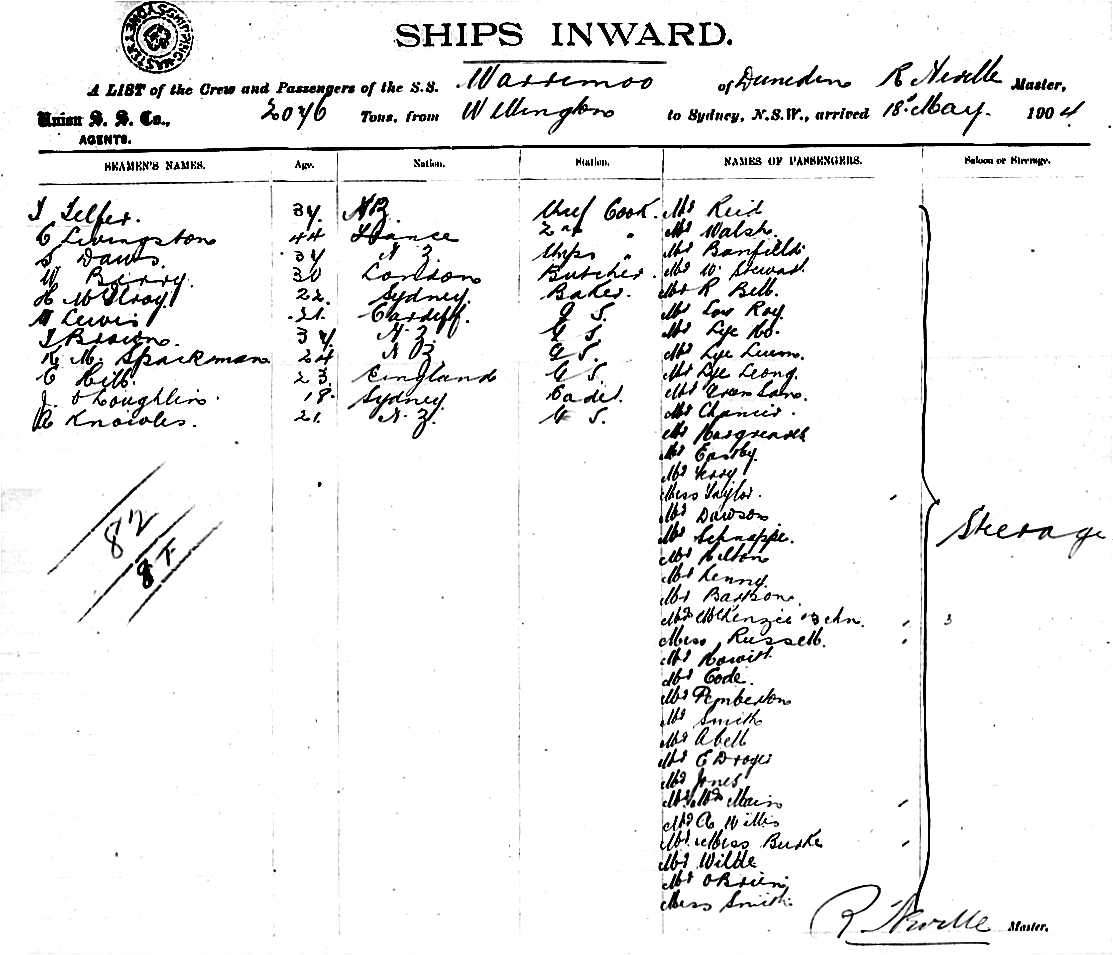 SHIPPING MASTER SYDNEY
SHIPS INWARD.
A LIST of the Crew and Passengers of the S.S. Warrimoo of Dunedin R Neville Master,
Union S. S. Co., 2076 Tons, from Wellington to Sydney, N.S.W., arrived 18th May. 1904
AGENTS.
SEAMEN'S NAMES. Age. Nation. Station. NAMES OF PASSENGERS. Saloon or Steerage.
Telfer. 34. NZ. Chief Cook. Mr Reid
C Livingston 44 France 2nd " Mr Walsh
S Daws. 34 N Z. Ships " Mr Banfield
W Berry. 30 London Butcher. Mr W. Dewar
H McIlroy 22. Sydney. Baker. Mr R Bell
Lewis 21. Cardiff. G S. Mr Low Roy
Brown. 34. N. Z. G S. Mr Lye Ho.
R. M. Spackman 24 N Z. G S. Mr Lye Leum
C Hill. 23 England G S. Mr Lye Leong
J. O'Loughlin. 18. Sydney Cadet. Mr
R Knowles. 21. N. Z. G S. Mr Chancis.
Mr Hargreaves
Mr Easby.
Mr
Miss Taylor.
Mr Dawson
Mr Schnappe.
Mr Hilton
Mr Kenny.
Mr
Mrs McKenzie & 3 chn. 3
Miss Russell.
Mr Howitt
Mr Code.
Mr Pemberton
Mr Smith
Mr Abell
Mr E
Mr Jones
Mr & Mrs Main
Mr A Willis
Mr & Miss Burke
Mr Wilde
Mr O'Brien
Miss Smith.
Steerage
82
8
R Neville Master.